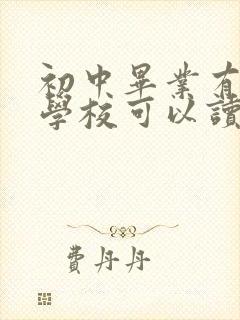 初中畢業有
學校可以讀
費丹丹